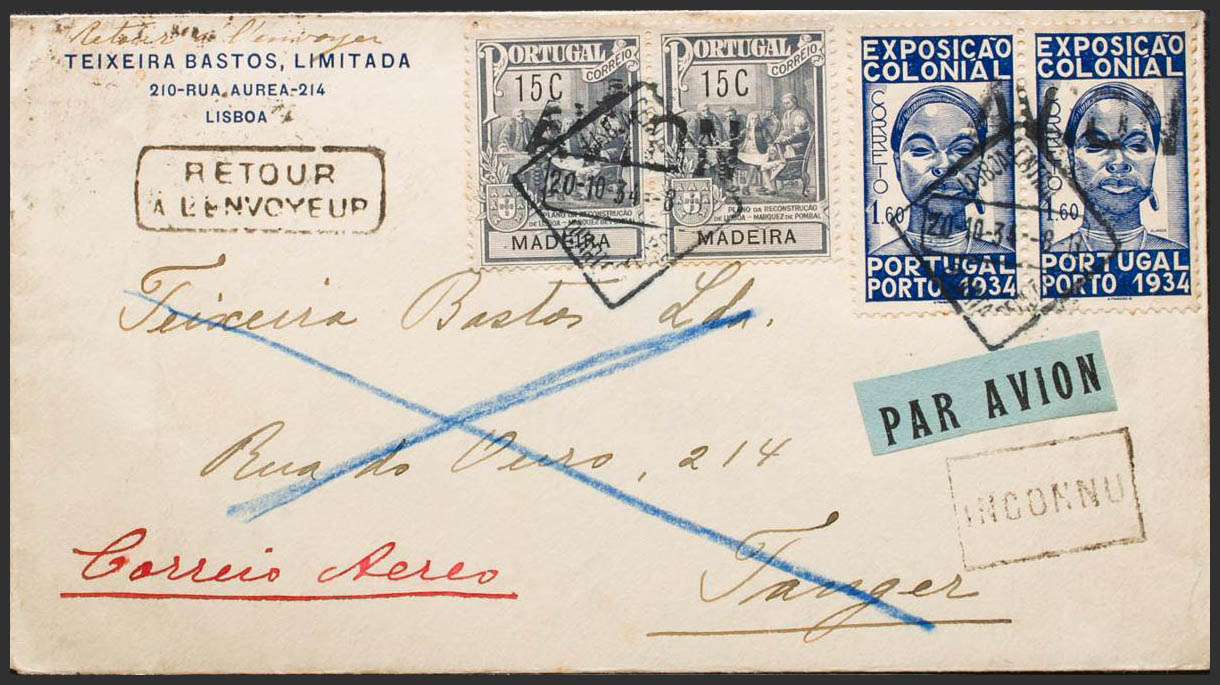 Retour à l'envoyer
TEIXEIRA BASTOS, LIMITADA
210-RUA AUREA-214
LISBOA
RETOUR
A L'ENVOYEUR
PORTUGAL
CORREIO
15C
PLANO DA RECONSTRUÇÃO
DE LISBOA - MARQUEZ DE POMBAL
MADEIRA
PORTUGAL
CORREIO
15C
PLANO DA RECONSTRUÇÃO
DE LISBOA - MARQUEZ DE POMBAL
MADEIRA
20-10-34
EXPOSIÇÃO
COLONIAL
CORREIO
1.60
PORTUGAL
PORTO 1934
EXPOSIÇÃO
COLONIAL
1.60
PORTUGAL
PORTO 1934
LISBOA CENTRAL
20-10-34
Teixeira Bastos Lda.
Rua do Ouro, 214
Tanger
Correio Aereo
PAR AVION
INCONNU